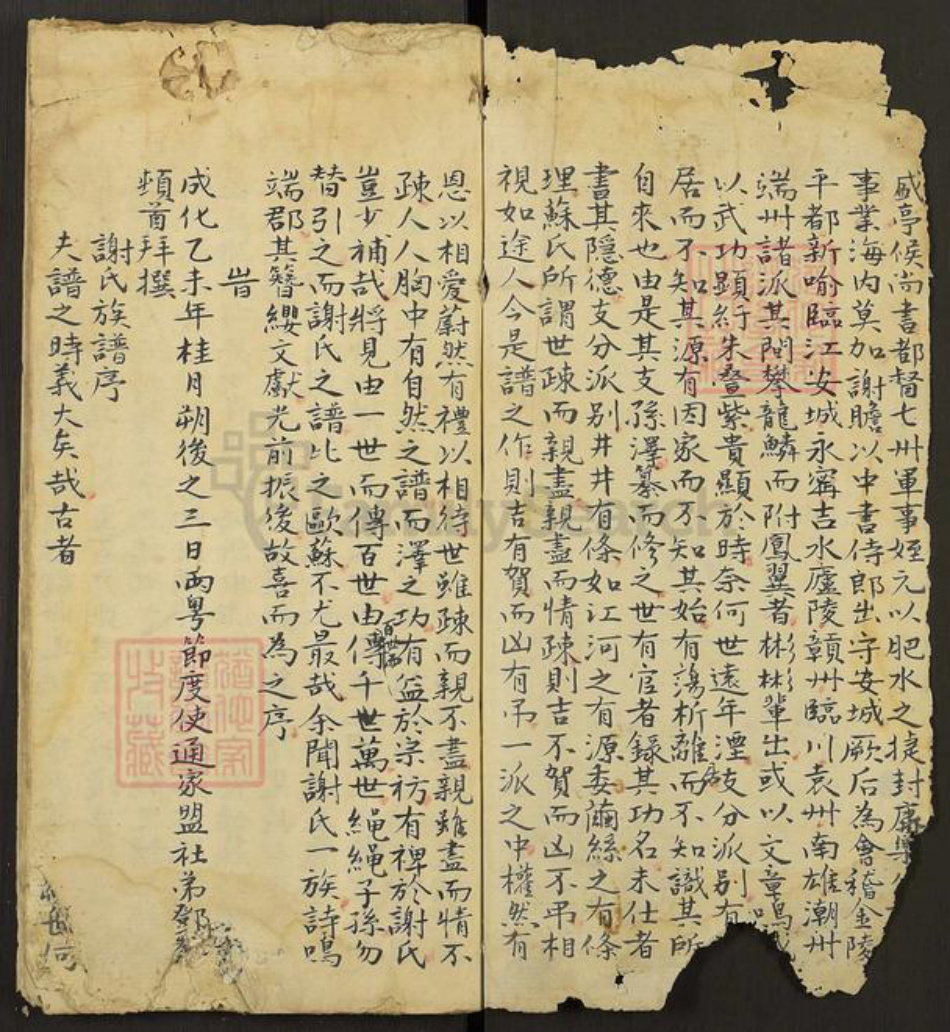 咸亭侯尚書都督七卅軍事姪元以肥水之捷封康樂
事業海内莫加謝瞻以中書侍郎出守安城厥后為會稽金陵
平都新喻臨江安城永甯吉水廬陵贛州臨川袁州南雄潮州
端州諸派其間攀龍鱗而附鳳翼者彬彬輩出或以文章鳴或
以武功顯紆朱疊紫貴顯於時奈何世遠年湮支分派別有
居而不知其源有因家而不知其始有蕩析離而不知識其所
自來也由是其支孫澤纂而修之世有官者錄其功名未仕者
書其隱德支分派别井井有條如江河之有源委繭絲之有條
理蘇氏所謂世疎而親盡親盡而情疎則吉不賀而凶不弔相
視如途人今是譜之作則吉有賀而凶有弔一派之中權然有
恩以相愛蔚然有禮以相待世雖疎而親不盡親雖盡而情不
疎人人胸中有自然之譜而澤之功有益於宗祊有裨於謝氏
豈少補哉將見由一世而傳百世由百世而傳千世萬世繩繩子孫勿
替引之而謝氏之譜比之歐蘇不尤最哉余聞謝氏一族詩鳴
端郡其簪纓文獻光前振後故喜而為之序
旹
成化乙未年桂月朔後之三日兩粤節度使通家盟社弟鄧
頼首拜撰
謝氏族譜序
夫譜之時義大矣哉古者